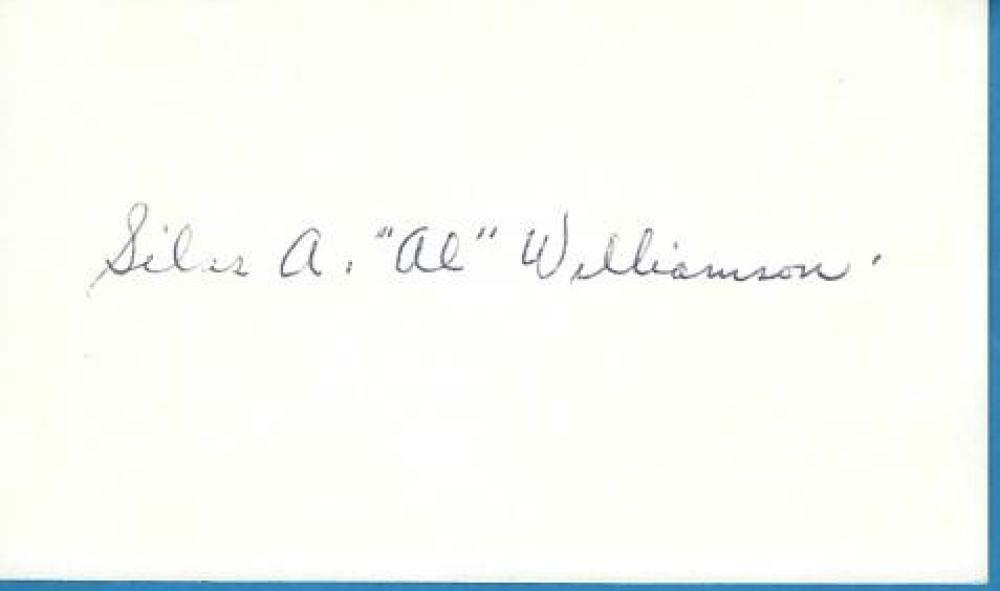 Silas A. "Al" Williamson